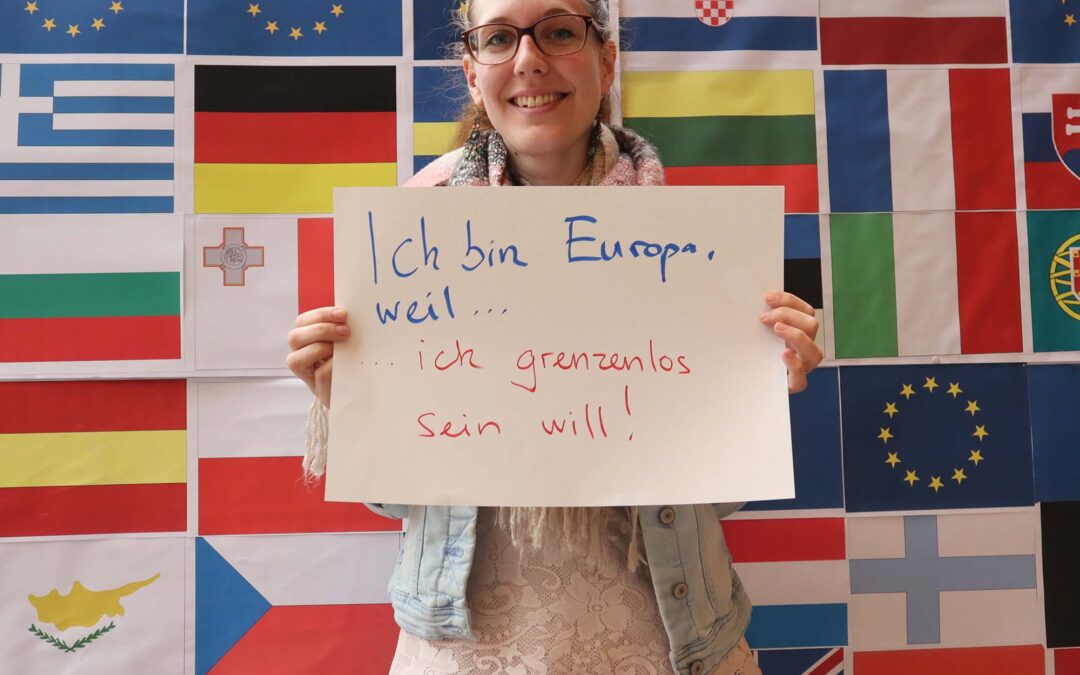 Ich bin Europa,
weil...
... ich grenzenlos
sein will!